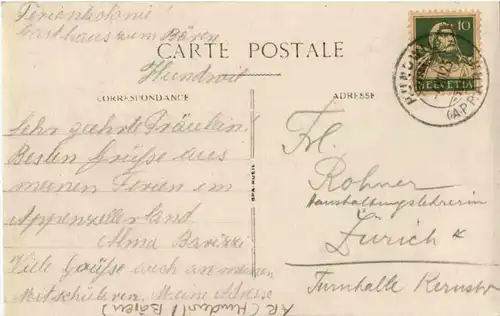 Ferienkolonie!
Gasthaus zum Bären
CARTE POSTALE
Hundwil
CORRESPONDANCE
ADRESSE
10
HELVETIA
Sehr geehrte Fräulein!
Besten Grüsse aus
meinen Ferien im
Appenzellerland
Alma
Viele Grüsse auch an anderen
Mitschüleren. Meine Adresse
AR (Hundwil Bären)
Frl.
Rohner
Haushaltungslehrerin
Zürich
Turnhalle Kernstr